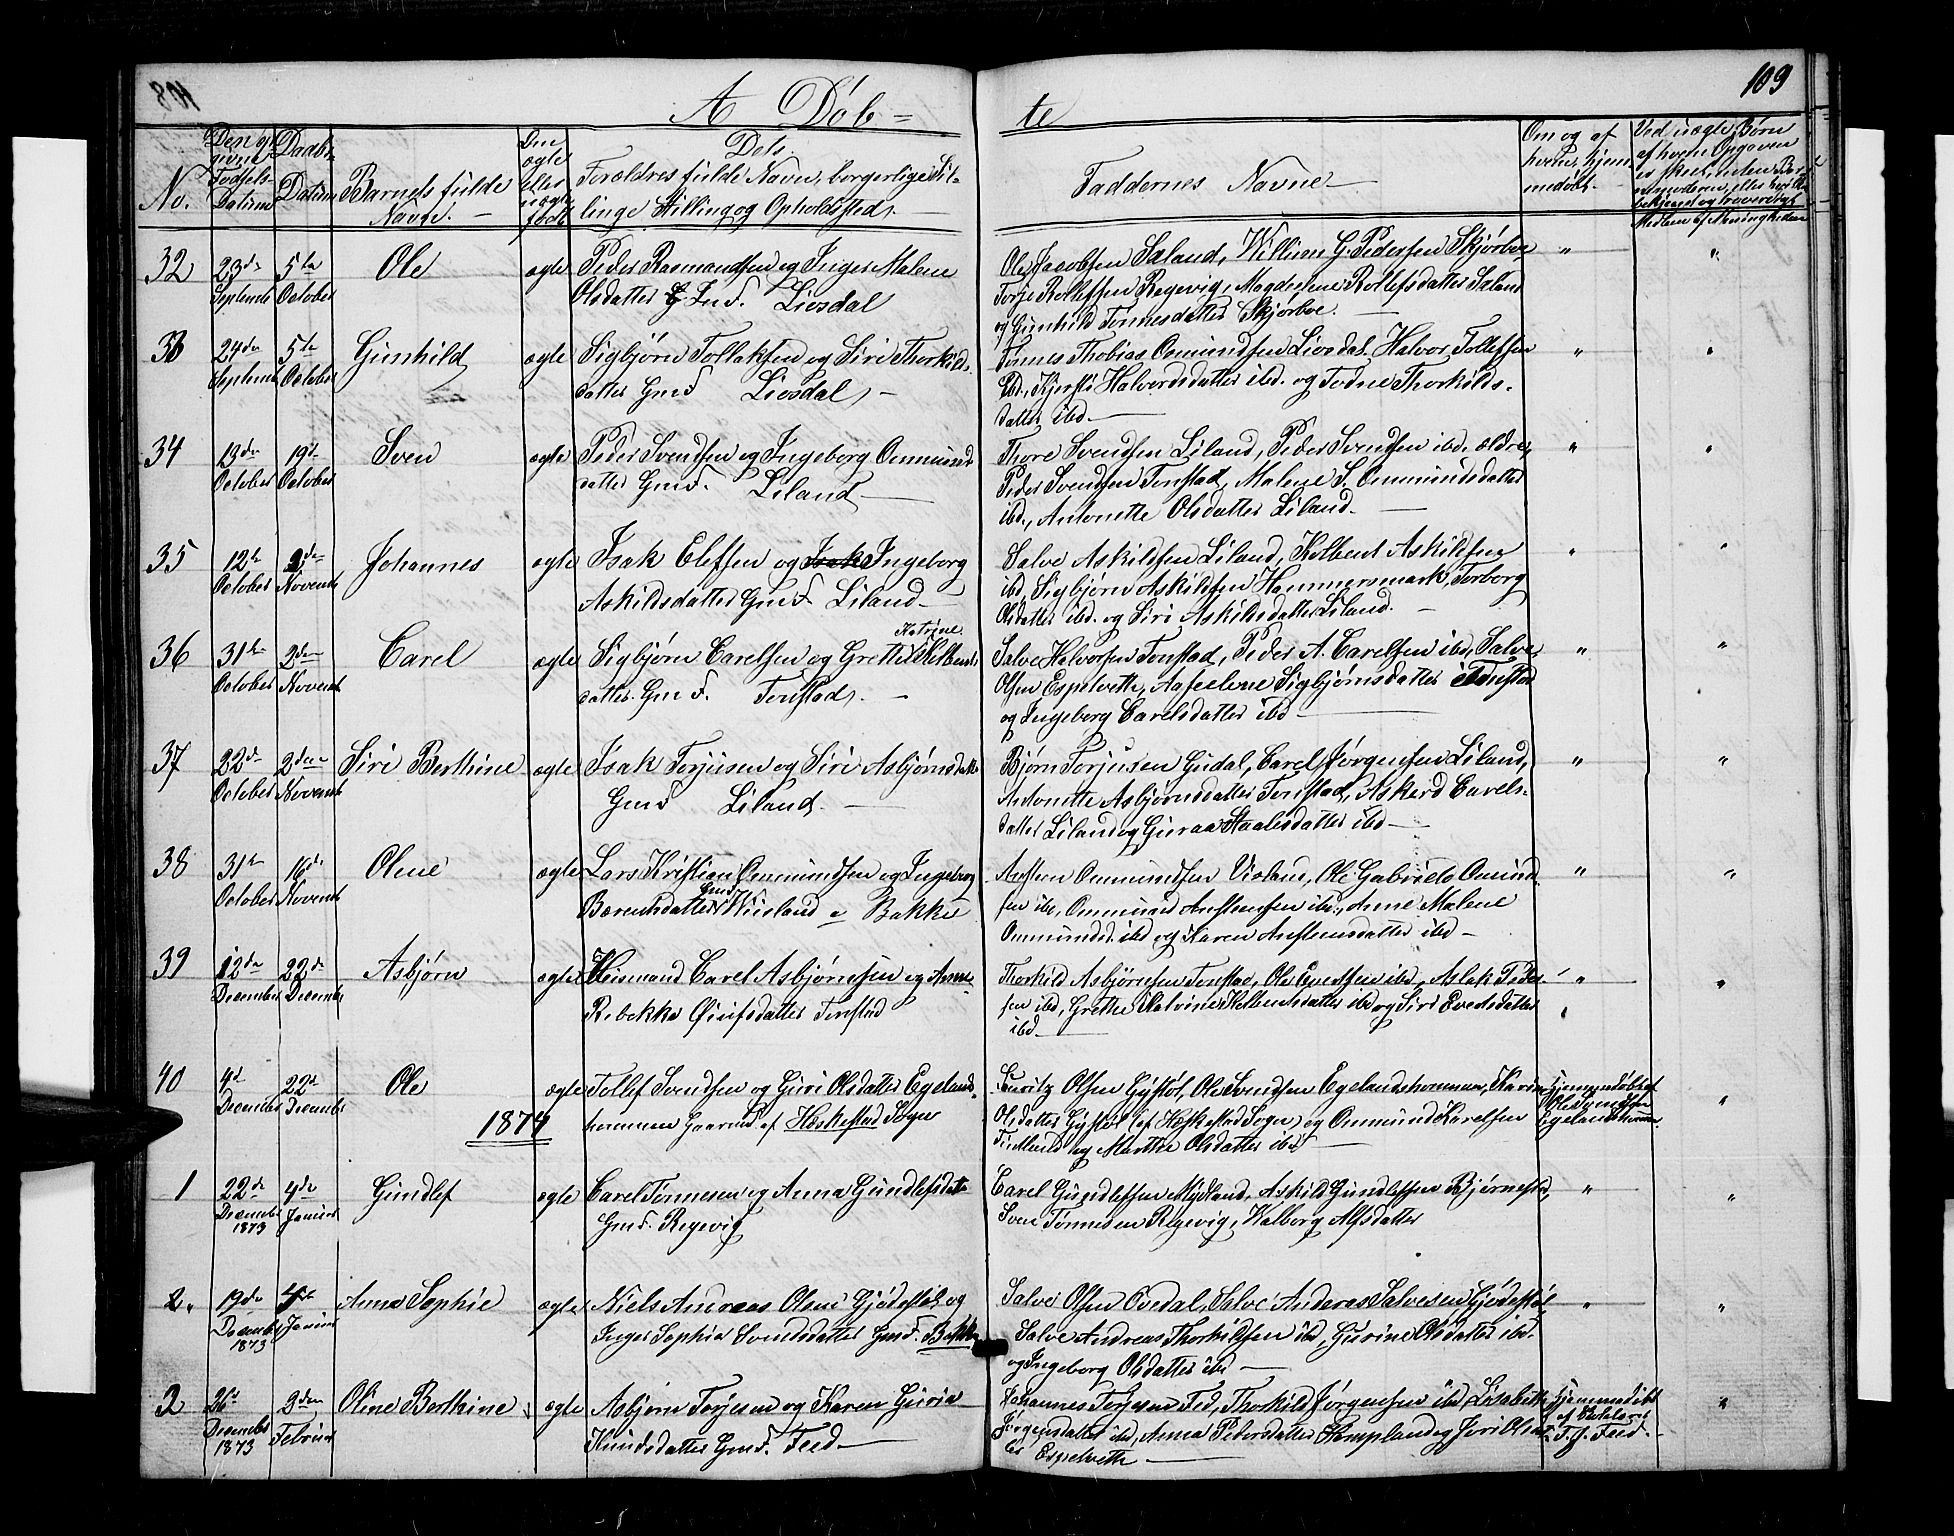 108
A Døb-
te
109
No.
Den opgivne Fødsels-Datum
Daabs-Datum
Barnets fulde Navn.
Om ægte eller uægte født
Dets Forældres fulde Navn, borgerlige Stilling og Opholdssted.
Faddernes Navne
Om og af hvem hjemmedøbt.
Medlem af Menigheden
32 23de September 5te October Ole ægte Peder Rasmundsen og Inger Malene
Olsdatter Gmd. Liosdal
Ole Jacobsen Saland, Willum G. Pedersen Skjørboe
Torje Rollefsen Regevig, Magdelene Rollefsdatter Saland
og Gunhild Tønnesdatter Skjørboe.
33 24de September 5te October Gunhild ægte Sigbjørn Tollaksen og Siri Thorkilds-
datter Gmd Liosdal
Tønnes Thobias Osmundsen Liosdal, Halvor Tollefsen
ibd., Kjersti Halvordsdatter ibd. og Todne Thorkilds-
datter ibd
34 13de October 19de October Sven ægte Peder Svendsen og Ingeborg Ommunds-
datter Gmd. Liland
Thore Svendsen Liland, Peder Svendsen ibd. ældre,
Peder Svendsen Tonstad, Malene S. Ommundsdatter
ibd., Antonette Olsdatter Liland.
35 12te October 2den Novemb Johannes ægte Isak Elefsen og Ingeborg
Askildsdatter Gmd. Liland
Salve Askildsen Liland, Kolbent Askildsen
ibd, Sigbjørn Askildsen Hammersmark, Torborg
Olsdatter ibd. og Siri Askildsdatter Liland.
36 31te October 2den Novemb Carel ægte Sigbjørn Carelsen og Grethe Katrine Kolbents-
datter. Gmd. Tonstad.
Salve Halvorsen Tonstad, Peder A. Carelsen ibd, Salve
Olsen Espelveth, Aaselene Sigbjørnsdatter Tonstad
og Ingeborg Carelsdatter ibd
37 22de October 2den Novemb Siri Berthine ægte Isak Torjusen og Siri Asbjørnsdatter
Gmd Liland.
Bjørn Torjusen Gudal, Carel Jørgensen Liland,
Antonette Asbjørnsdatter Tonstad, Askerd Carels-
datter Liland og Guraa Staalesdatter ibd
38 31te October 16de Novemb Olene ægte Lars Kristian Ommundsen og Ingeborg
Bærentsdatter Gmd Kvisland a Bakke
Austen Ommundsen Violand, Ole Gabriels Omund-
sen ibd, Ommund Austensen ibd., Anne Malene
Ommundsd. ibd og Karen Austensdatter ibd
39 12de December 22de December Asbjørn ægte Carel Asbjørnsen og Anne
Rebekka datter Tonstad
Thorkild Asbjørnsen Tonstad, Ole Evertsen ibd, Aslak Peder-
sen ibd, Grethe Katrine Kolbentsdatter ibd og Siri Evertsdatter
ibd
40 4de December 22de December Ole ægte Tollef Svendsen og Guri Olsdatter Egelands-
hommen Gaardmd. af Heskestad Sogn
Lauritz Olsen Gystøl, Ole Svendsen Egelandshommen, Karen
Olsdatter Gystøl (af Heskestad Sogn) og Ommund Karelsen
og Marthe Olsdatter ibd
Hjemmedøbt af Ole Svendsen Egelandshommen
1874
1 22de December 1873 4de Januar Gundlef ægte Carel Tønnesen og Anna Gundlefsdatter
Gmd. Regevig
Carel Gundlefsen Mydland, Askild Gundlefsen Bjørnestø,
Sven Tønnesen Regevig, Walborg Alfsdatter
2. 19de December 1873 4de Januar Anna Sophie ægte Niels Andreas Olsen Gjødestøl og
Inger Sophia Svendsdatter Gmd. Bakke
Salve Olsen Ovedal, Salve Andreas Salvesen Gjødestøl,
Salve Andreas Thorkildsen ibd, Gurine Olsdatter ibd.
og Ingeborg Olsdatter ibd
3 26de December 1873 2den Februar Oline Berthine ægte Asbjørn Torjesen og Karen Guria
Knudsdatter Gmd. Feed
Johannes Torjesen Fed, Thorkild Jørgensen ibd, Lisabeth
Jørgensdatter ibd, Anna Pedersdatter og Jori Olsdat-
ter Espelveth
Hjemmedøbt af T. J. Feed.